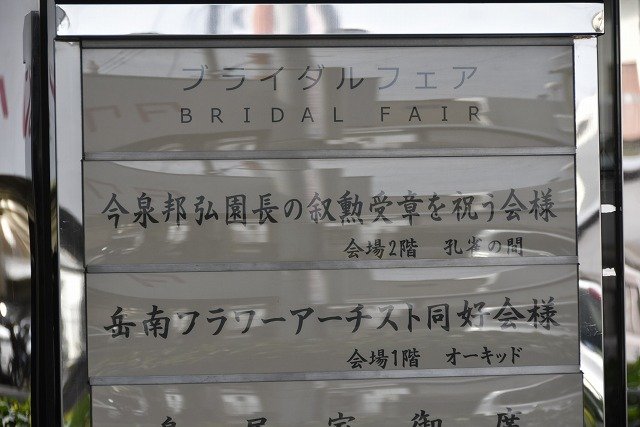 ブライダルフェア
BRIDAL FAIR
今泉邦弘園長の叙勲受章を祝う会様
会場2階 孔雀の間
岳南フラワーアーチスト同好会様
会場1階 オーキッド